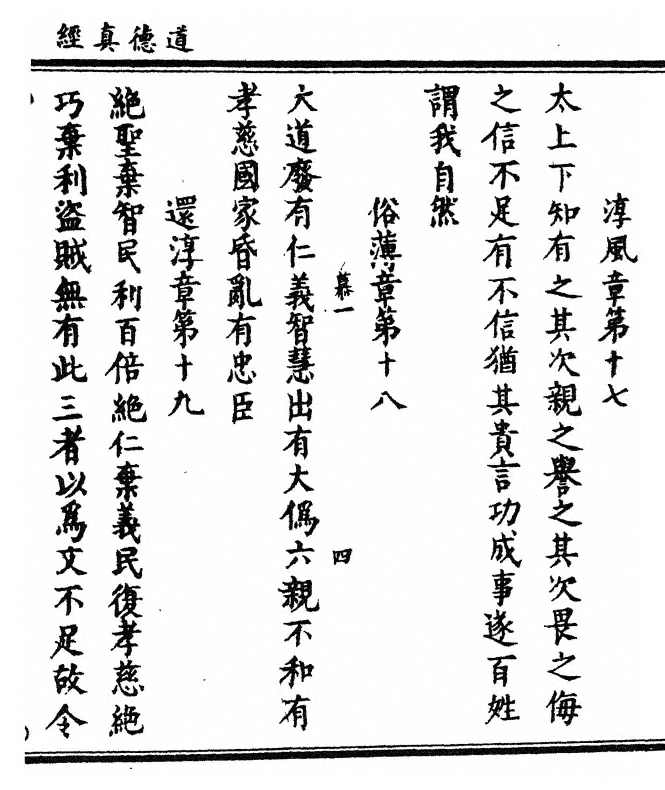 道德真經
淳風章第十七
太上下知有之其次親之譽之其次畏之侮
之信不足有不信猶其貴言功成事遂百姓
謂我自然
俗薄章第十八
慕一
四
大道廢有仁義智慧出有大僞六親不和有
孝慈國家昏亂有忠臣
還淳章第十九
絶聖棄智民利百倍絶仁棄義民復孝慈絶
巧棄利盜賊無有此三者以爲文不足故令